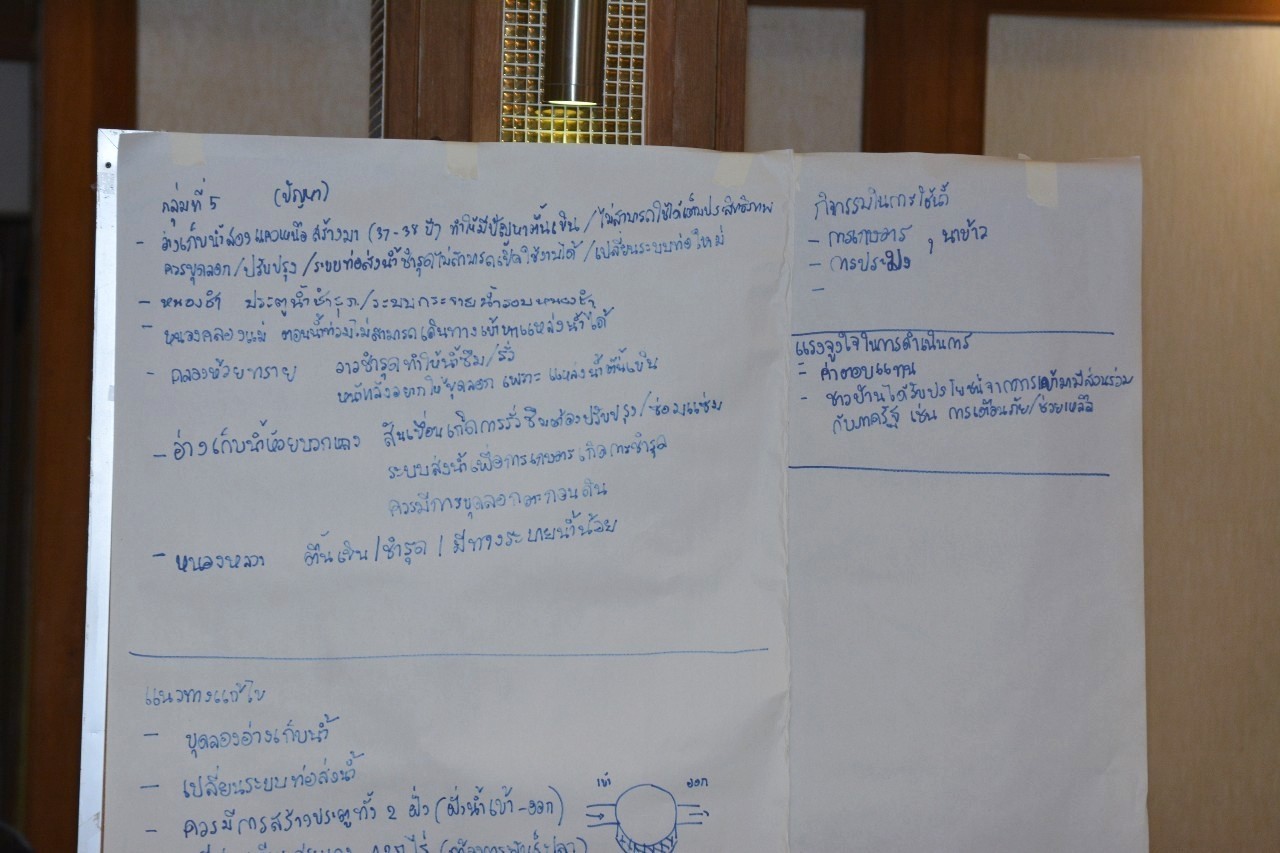 กลุ่มที่ 5 (ปัญหา)
- อ่างเก็บน้ำสองแควเหนือ สร้างมา (37-38 ปี) ทำให้มีปัญหาตื้นเขิน / ไม่สามารถใช้ได้เต็มประสิทธิภาพ
ควรขุดลอก / ปรับปรุง / ระบบท่อส่งน้ำชำรุดไม่สามารถเปิดใช้งานได้ / เปลี่ยนระบบท่อใหม่
- หนองช้ำ ประตูน้ำชำรุด / ระบบกระจายน้ำรอบหนองช้ำ
- หนองคลองแม่ ตอนน้ำท่วมไม่สามารถเดินทางเข้าหาแหล่งน้ำได้
- คลองห้วยทราย อาจชำรุดทำให้น้ำซึม / รั่ว
อยากให้ขุดลอก เพราะ แหล่งน้ำตื้นเขิน
- อ่างเก็บน้ำห้วยบวกหลวง สันเขื่อนเกิดการรั่วซึมต้องปรับปรุง / ซ่อมแซม
ระบบส่งน้ำเพื่อการเกษตร เกิดการชำรุด
ควรมีการขุดลอกตะกอนดิน
- หนองหลวง ตื้นเขิน / ชำรุด / มีทางระบายน้ำน้อย
แนวทางแก้ไข
- ขุดลองอ่างเก็บน้ำ
- เปลี่ยนระบบท่อส่งน้ำ
- ควรมีการสร้างประตูทั้ง 2 ฝั่ง (ฝั่งน้ำเข้า - ออก)
เข้า ออก
กิจกรรมในการใช้น้ำ
- การเกษตร , นาข้าว
- การประมง
-
แรงจูงใจในการดำเนินการ
- ค่าตอบแทน
- ชาวบ้านได้รับประโยชน์จากการเข้ามามีส่วนร่วม
กับภาครัฐ เช่น การเตือนภัย / ช่วยเหลือ